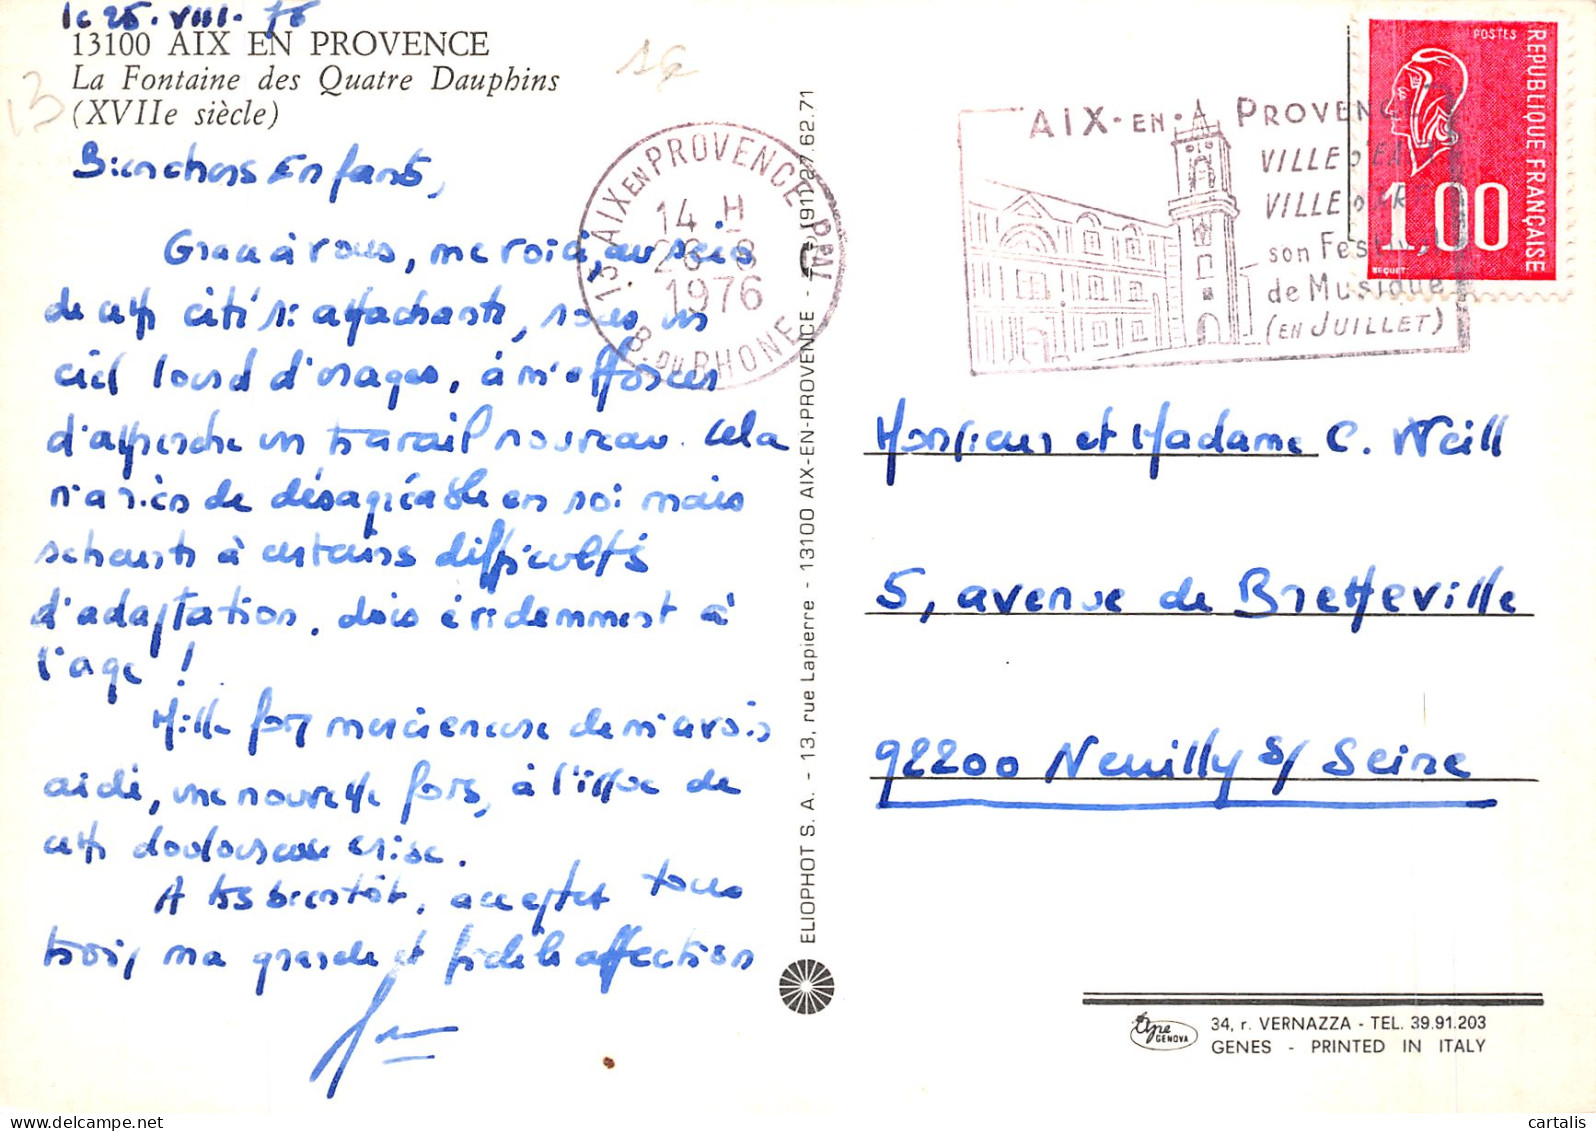 le 25. VIII. 76
13100 AIX EN PROVENCE
La Fontaine des Quatre Dauphins
(XVIIe siècle)
13
Bien chers Enfants,
Grace à vous, me voici, au sein
de cette cité si attachante, sous un
ciel lourd d'orages, à m'efforcer
d'apprendre un travail nouveau. Cela
n'a rien de désagréable en soi mais
se heurte à certains difficultés
d'adaptation, dois évidemment à
l'age !
Mille fois merci encore de m'avoir
aidé, une nouvelle fois, à l'issue de
cette douloureuse crise.
A très bientôt, acceptez tous
trois, ma grande et fidèle affection
13 AIX EN PROVENCE PPAL
14 H
26-8
1976
B. DU RHONE
AIX-EN-PROVENCE
VILLE D'EAU
VILLE D'ART
son Festival
de Musique
(EN JUILLET)
POSTES
REPUBLIQUE FRANÇAISE
1.00
BEQUET
ELIOPHOT S. A. - 13, rue Lapierre - 13100 AIX-EN-PROVENCE - (91) 27.62.71
Monsieur et Madame C. Weill
5, avenue de Bretteville
92200 Neuilly s/ Seine
GENOVA
34, r. VERNAZZA - TEL. 39.91.203
GENES - PRINTED IN ITALY
cartalis | delcampe.net